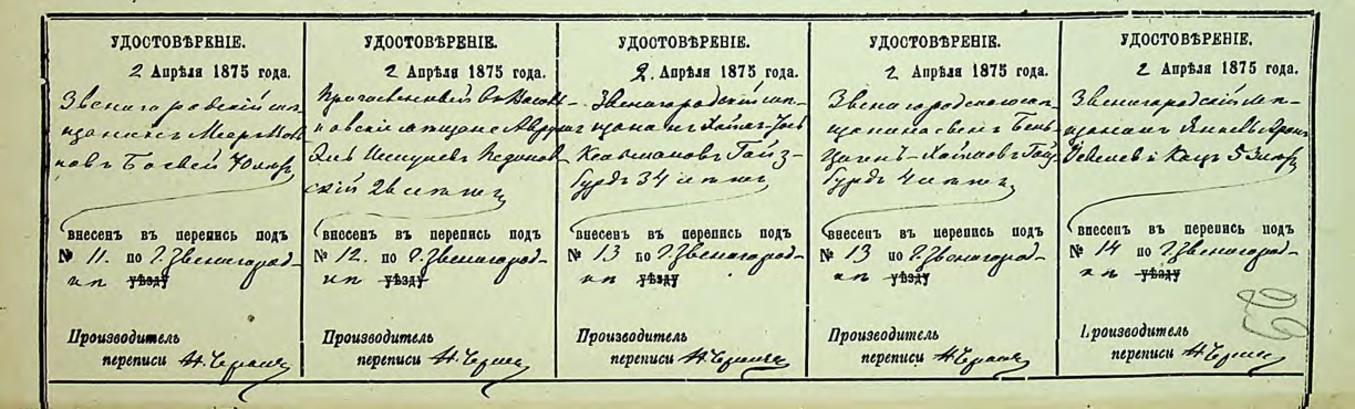 УДОСТОВѢРЕНІЕ.
2 Апрѣля 1875 года.
Звенигородскій мѣ-
щанинъ Меер
Боевей 40 лѣтъ
внесенъ въ перепись подъ
№ 11. по г. Звенигород-
кѣ уѣзду
Производитель
переписи
УДОСТОВѢРЕНІЕ.
2 Апрѣля 1875 года.
Василь-
ковскій мѣщан
скій 28 лѣтъ
внесенъ въ перепись подъ
№ 12. по г. Звенигород-
кѣ уѣзду
Производитель
переписи
УДОСТОВѢРЕНІЕ.
2. Апрѣля 1875 года.
Звенигородскій мѣ-
щанинъ Хаимъ-Іось
Кельмановъ Гойз-
бурдъ 34 лѣтъ
внесенъ въ перепись подъ
№ 13 по г. Звенигород-
кѣ уѣзду
Производитель
переписи
УДОСТОВѢРЕНІЕ.
2 Апрѣля 1875 года.
Звенигородскаго мѣ-
щанина сынъ Бень-
Хаимовъ Гойз-
бурдъ 4 лѣтъ
внесенъ въ перепись подъ
№ 13 по г. Звенигород-
кѣ уѣзду
Производитель
переписи
УДОСТОВѢРЕНІЕ.
2 Апрѣля 1875 года.
Звенигородскій мѣ-
щанинъ Янкель Арон
Кацъ 53 лѣтъ
внесенъ въ перепись подъ
№ 14 по г. Звенигород-
кѣ уѣзду
Производитель
переписи